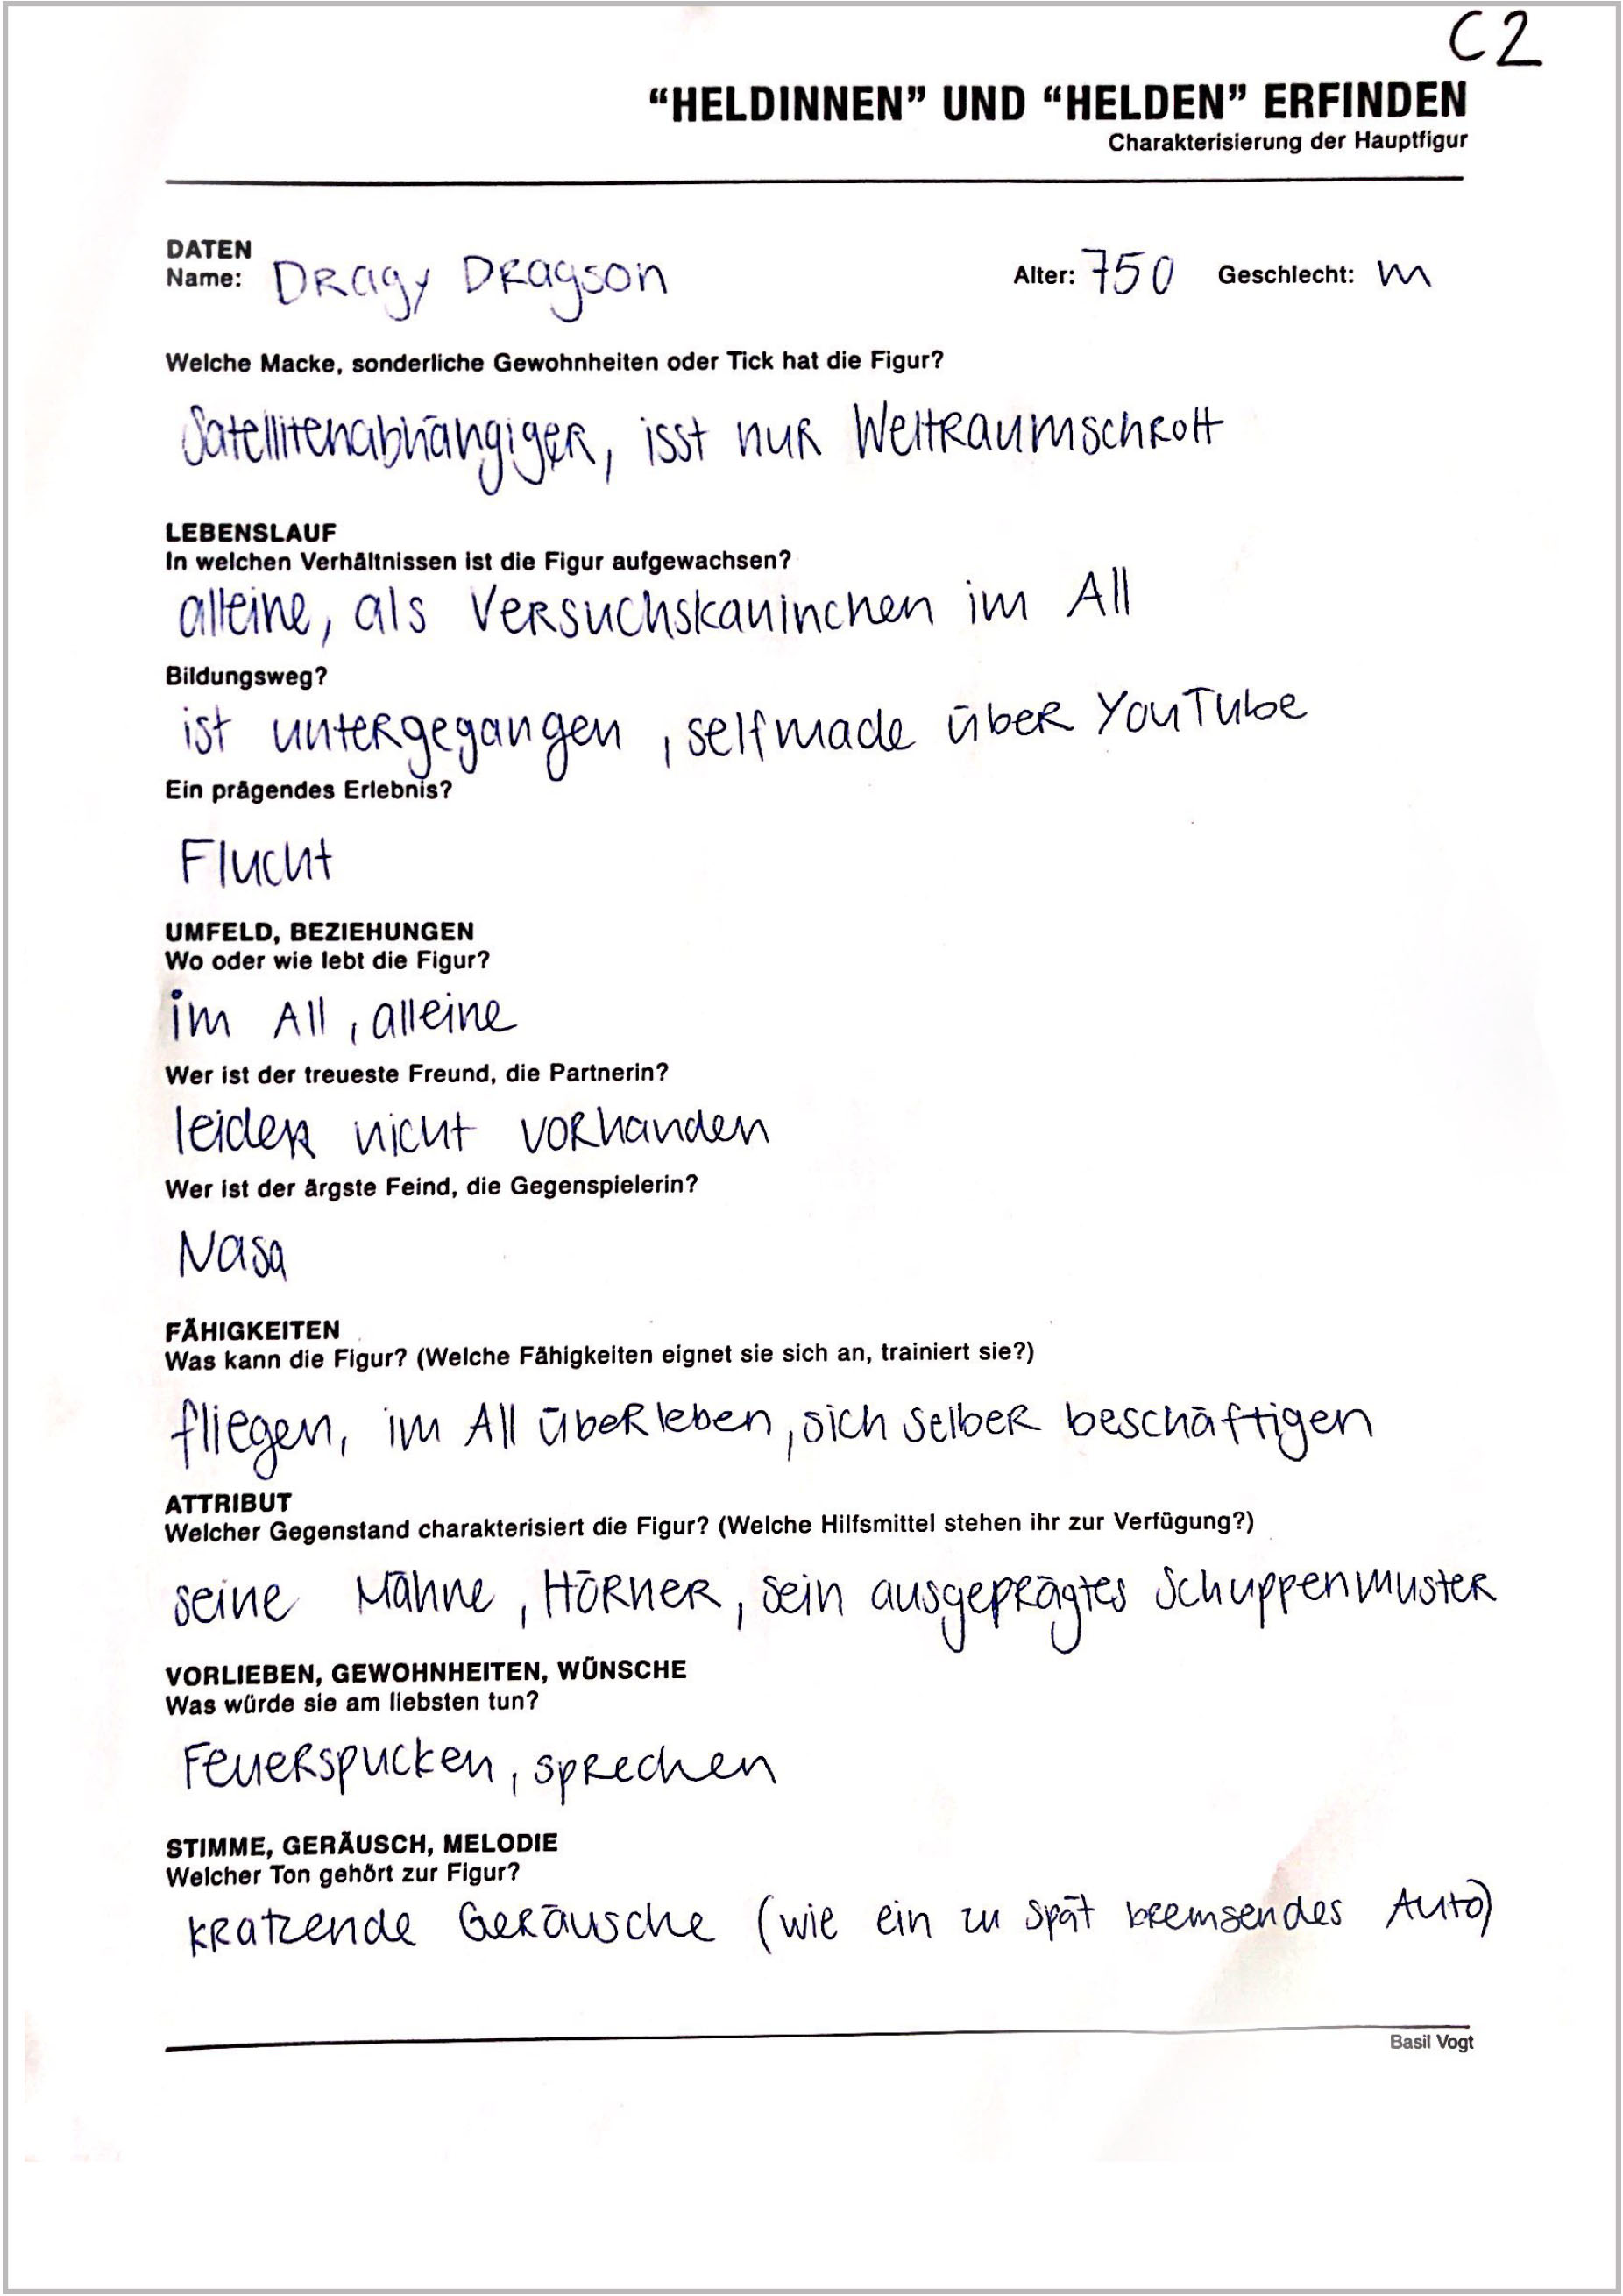 C2
“HELDINNEN” UND “HELDEN” ERFINDEN
Charakterisierung der Hauptfigur
DATEN
Name: Dragy Dragson Alter: 750 Geschlecht: m
Welche Macke, sonderliche Gewohnheiten oder Tick hat die Figur?
Satellitenabhängiger, isst nur Weltraumschrott
LEBENSLAUF
In welchen Verhältnissen ist die Figur aufgewachsen?
alleine, als Versuchskaninchen im All
Bildungsweg?
ist untergegangen, selfmade über YouTube
Ein prägendes Erlebnis?
Flucht
UMFELD, BEZIEHUNGEN
Wo oder wie lebt die Figur?
im All, alleine
Wer ist der treueste Freund, die Partnerin?
leider nicht vorhanden
Wer ist der ärgste Feind, die Gegenspielerin?
Nasa
FÄHIGKEITEN
Was kann die Figur? (Welche Fähigkeiten eignet sie sich an, trainiert sie?)
fliegen, im All überleben, sich selber beschäftigen
ATTRIBUT
Welcher Gegenstand charakterisiert die Figur? (Welche Hilfsmittel stehen ihr zur Verfügung?)
seine Mähne, Hörner, sein ausgeprägtes Schuppenmuster
VORLIEBEN, GEWOHNHEITEN, WÜNSCHE
Was würde sie am liebsten tun?
Feuerspucken, sprechen
STIMME, GERÄUSCH, MELODIE
Welcher Ton gehört zur Figur?
kratzende Geräusche (wie ein zu spät bremsendes Auto)
Basil Vogt